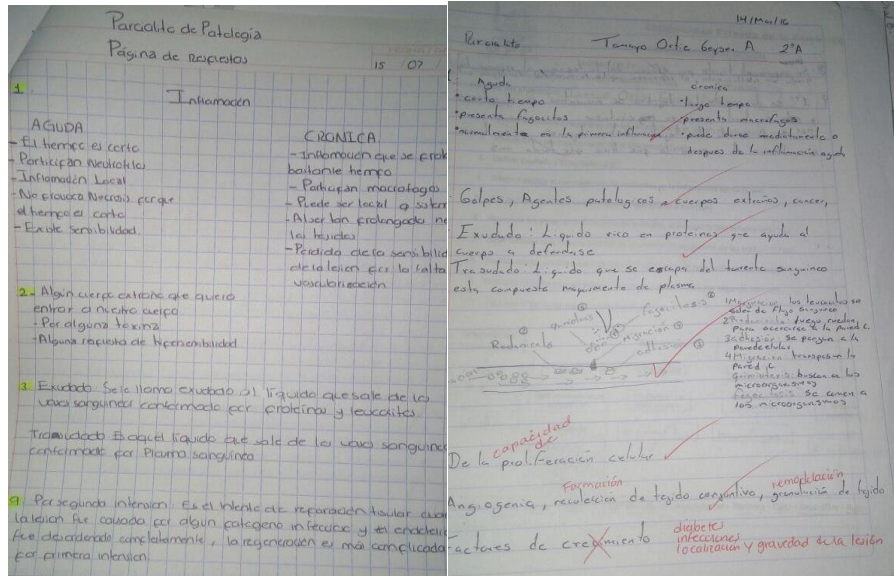 Parcialito de Patología
Página de Respuestas
15 07
1.
Inflamación
AGUDA
- El tiempo es corto
- Participan Neutrofilos
- Inflamación Local
- No provoca Necrosis porque
el tiempo es corto
- Existe sensibilidad.
CRONICA
- Inflamación que se
bastante tiempo
- Participan macrofagos
- Puede ser local o
- Al ser tan prolongada
los tejidos
- Perdida de la
de la lesion por la falta
vascularización
2.- Algún cuerpo extraño que quiera
entrar a nuestro cuerpo
- Por alguna toxina
- Alguna respuesta de hipersensibilidad
3. Exudado: Se le llama exudado al líquido que sale de los
vasos sanguineos conformado por proteinas y leucocitos.
Trasudado: Es aquel líquido que sale de los vasos
conformado por Plasma sanguíneo
9. Por segunda intension: Es el intento de reparación tisular
la lesion fue causada por algun patogeno infeccioso y el
fue desordenado completamente, la regeneración es más complicada
por primera intension.
14/Mar/16
Parcialito Tamayo Ortiz Geysen A. 2°A
Aguda
• corto tiempo
• presenta fagocitos
• normalmente es la primera
cronica
• largo tiempo
• presenta macrofagos
• puede darse
despues de la inflamación aguda
Golpes, Agentes patologicos, cuerpos extraños, cancer,
Exudado: Liquido rico en proteinas que ayuda al
cuerpo a defenderse
Trasudado: Liquido que se escapa del torrente sanguineo
esta compuesto mayormente de plasma
Rodamiento
quimiotaxis
fagocitosis
migración
adhesion
los leucocitos se
salen de flujo sanguineo
2 luego ruedan
para acercarse a la pared c.
3 adhesión: se pegan a la
pared celular
4 Migración: transpasan la
pared c
quimiotaxis: buscan a los
microorganismos
fagocitosis: se comen a
los microorganismos
capacidad
de
De la proliferación celular
Formación
remodelación
Angiogenia, recolección de tejido conjuntivo, granulación de tejido
Factores de crecimiento
diabetes
infecciones
localización y gravedad de la lesión